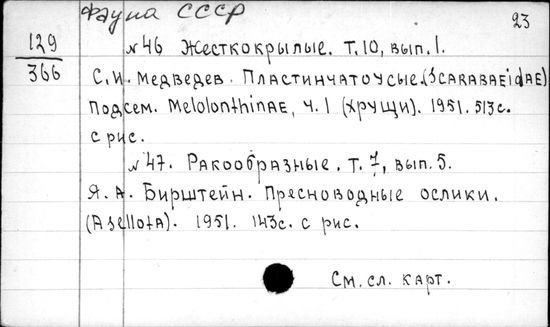 Фауна СССР
23
129
366
№46 Жесткокрылые. Т.10, вып.1.
С.И. Медведев. Пластинчатоусые. (Scarabaeidae)
Подсем. Melolonthinae, ч.1 (хрущи). 1951. 513с.
с рис.
№47. Ракообразные. Т. 7, вып.5.
Я.А. Бирштейн. Пресноводные ослики.
(Asellota). 1951. 143с. с рис.
См. сл. карт.